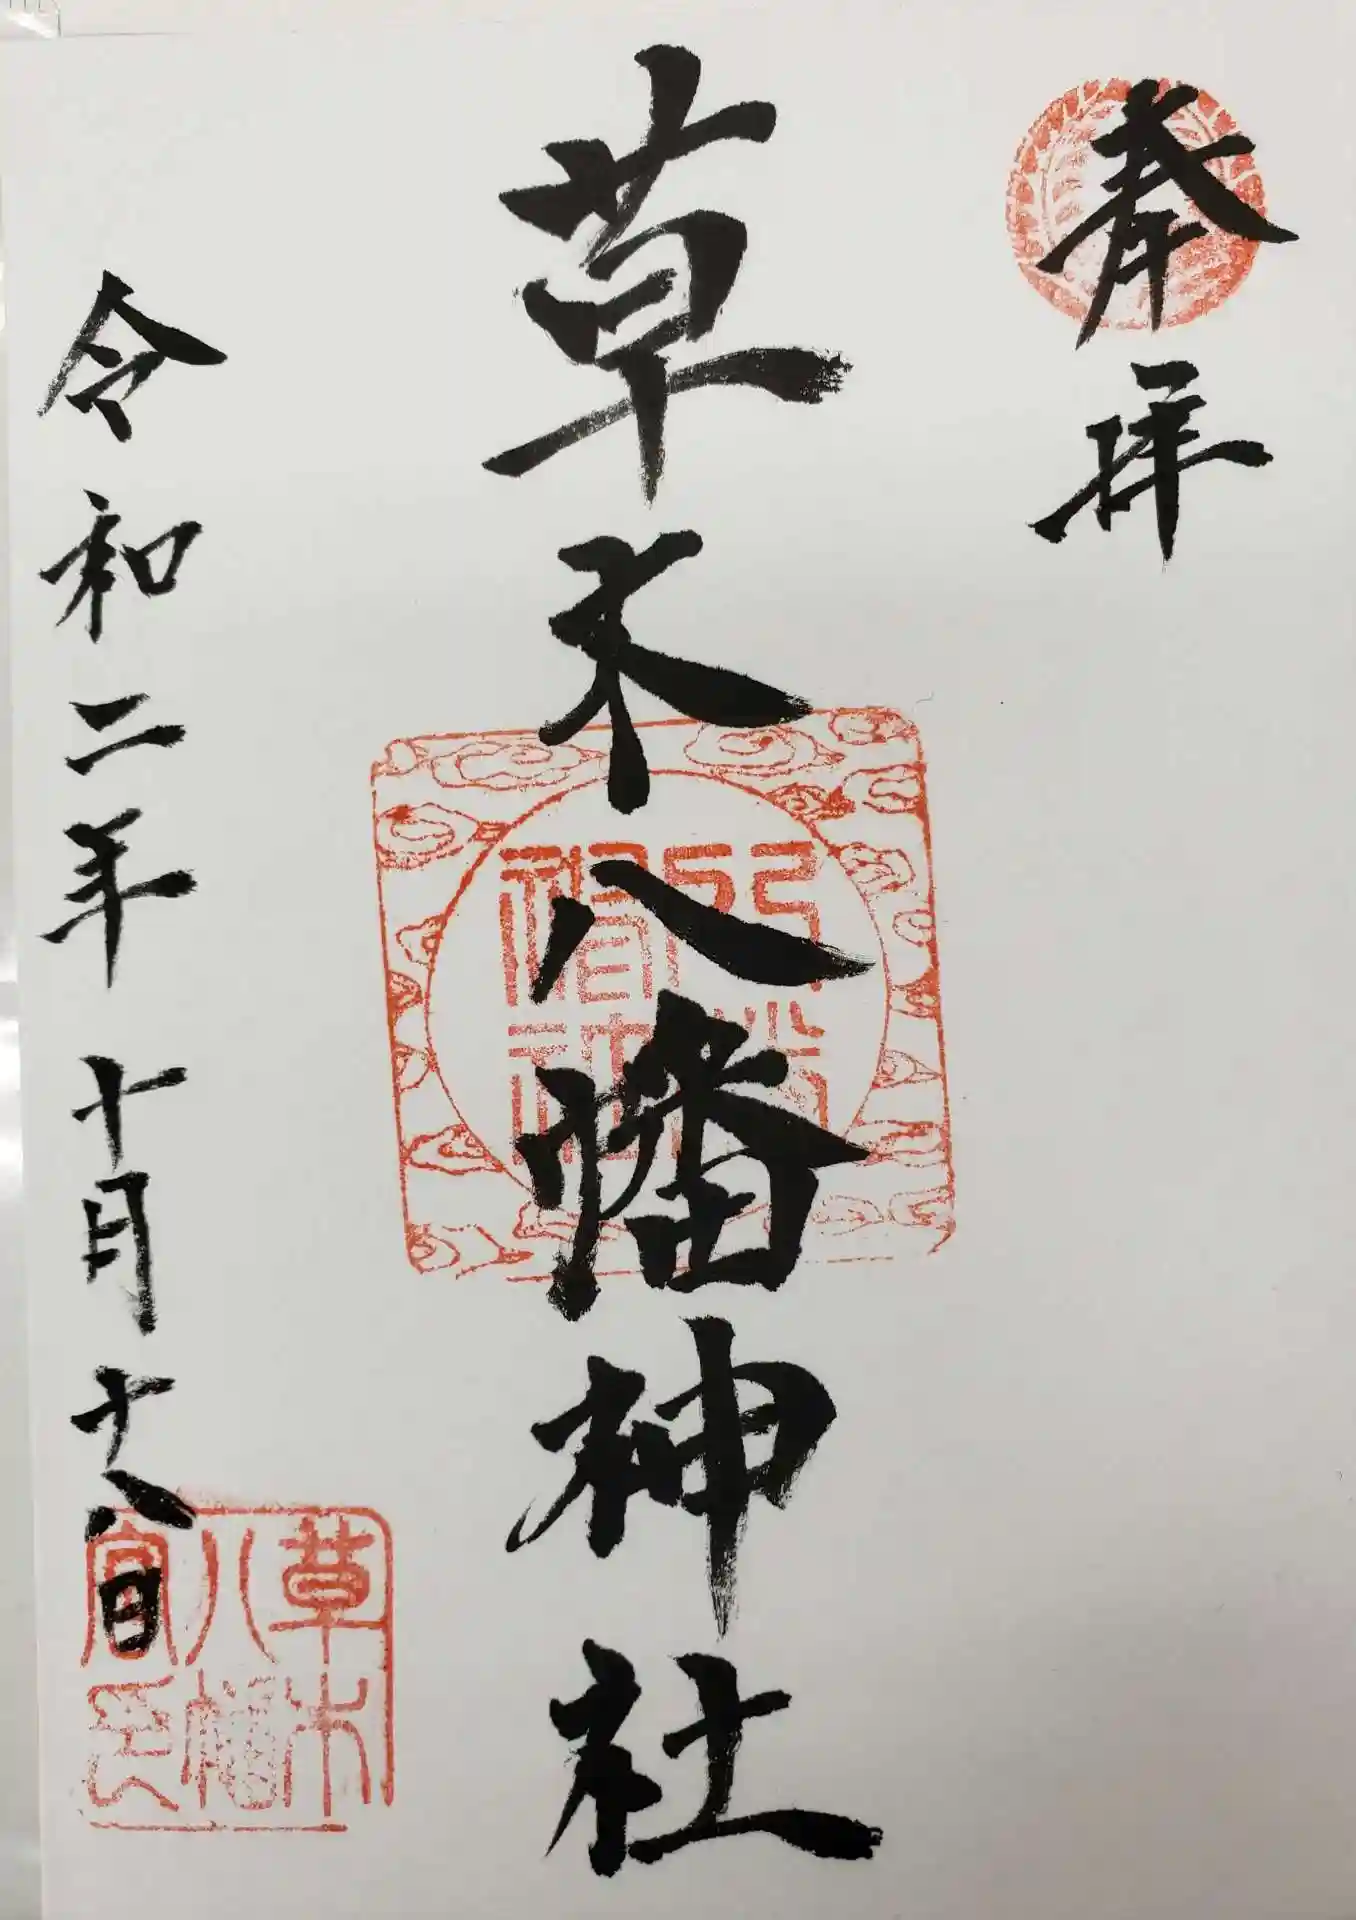 奉拝
草木八幡神社
令和二年十月十八日
草木
八幡
宮印